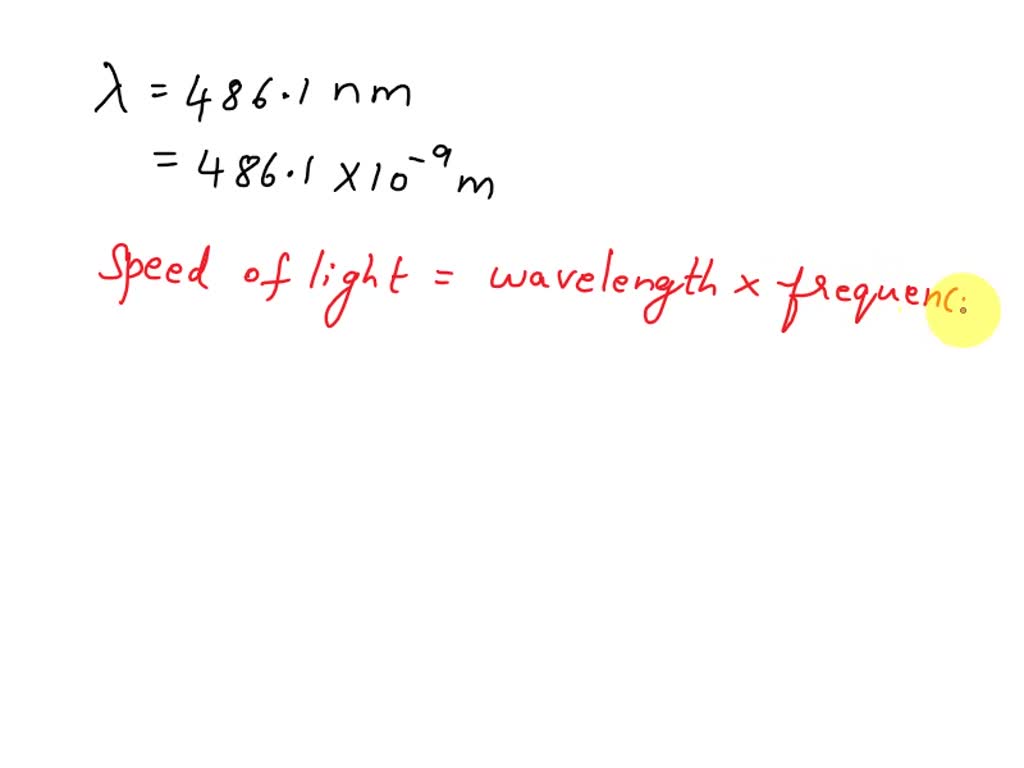 λ = 486.1 nm
= 486.1 × 10⁻⁹ m
Speed of light = wavelength × frequenc